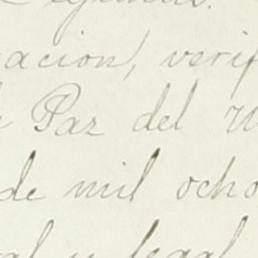 acion, verif
Paz del
de mil ocho
y legal